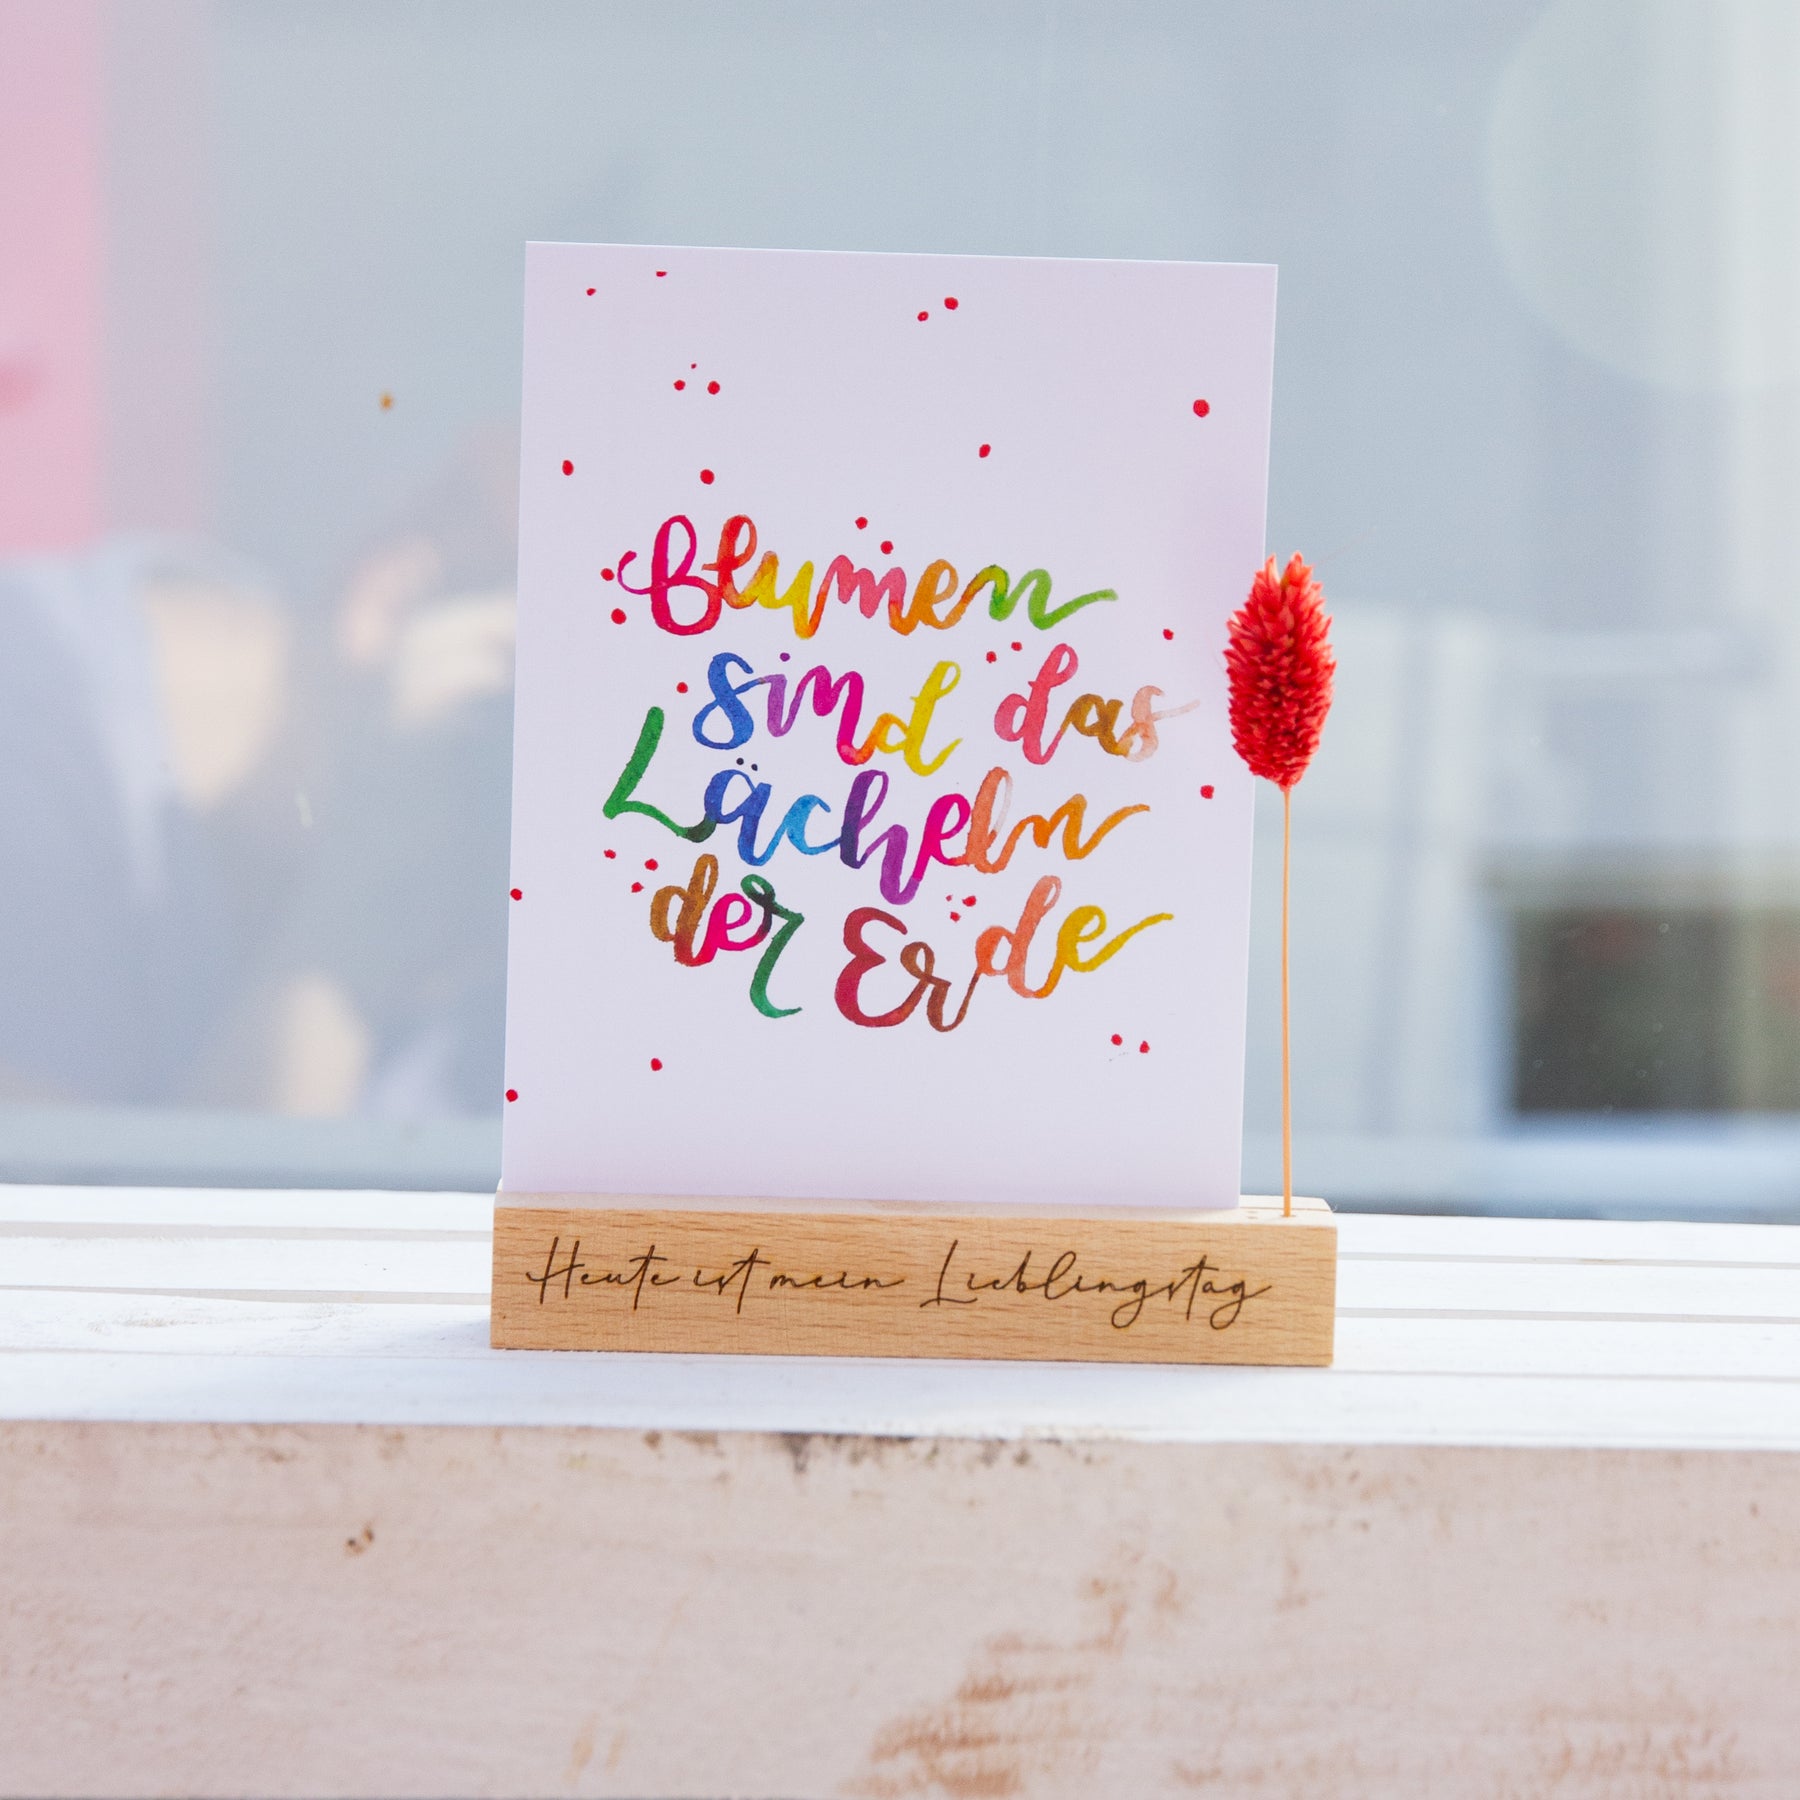 Blumen
sind das
Lächeln
der Erde
Heute ist mein Lieblingstag